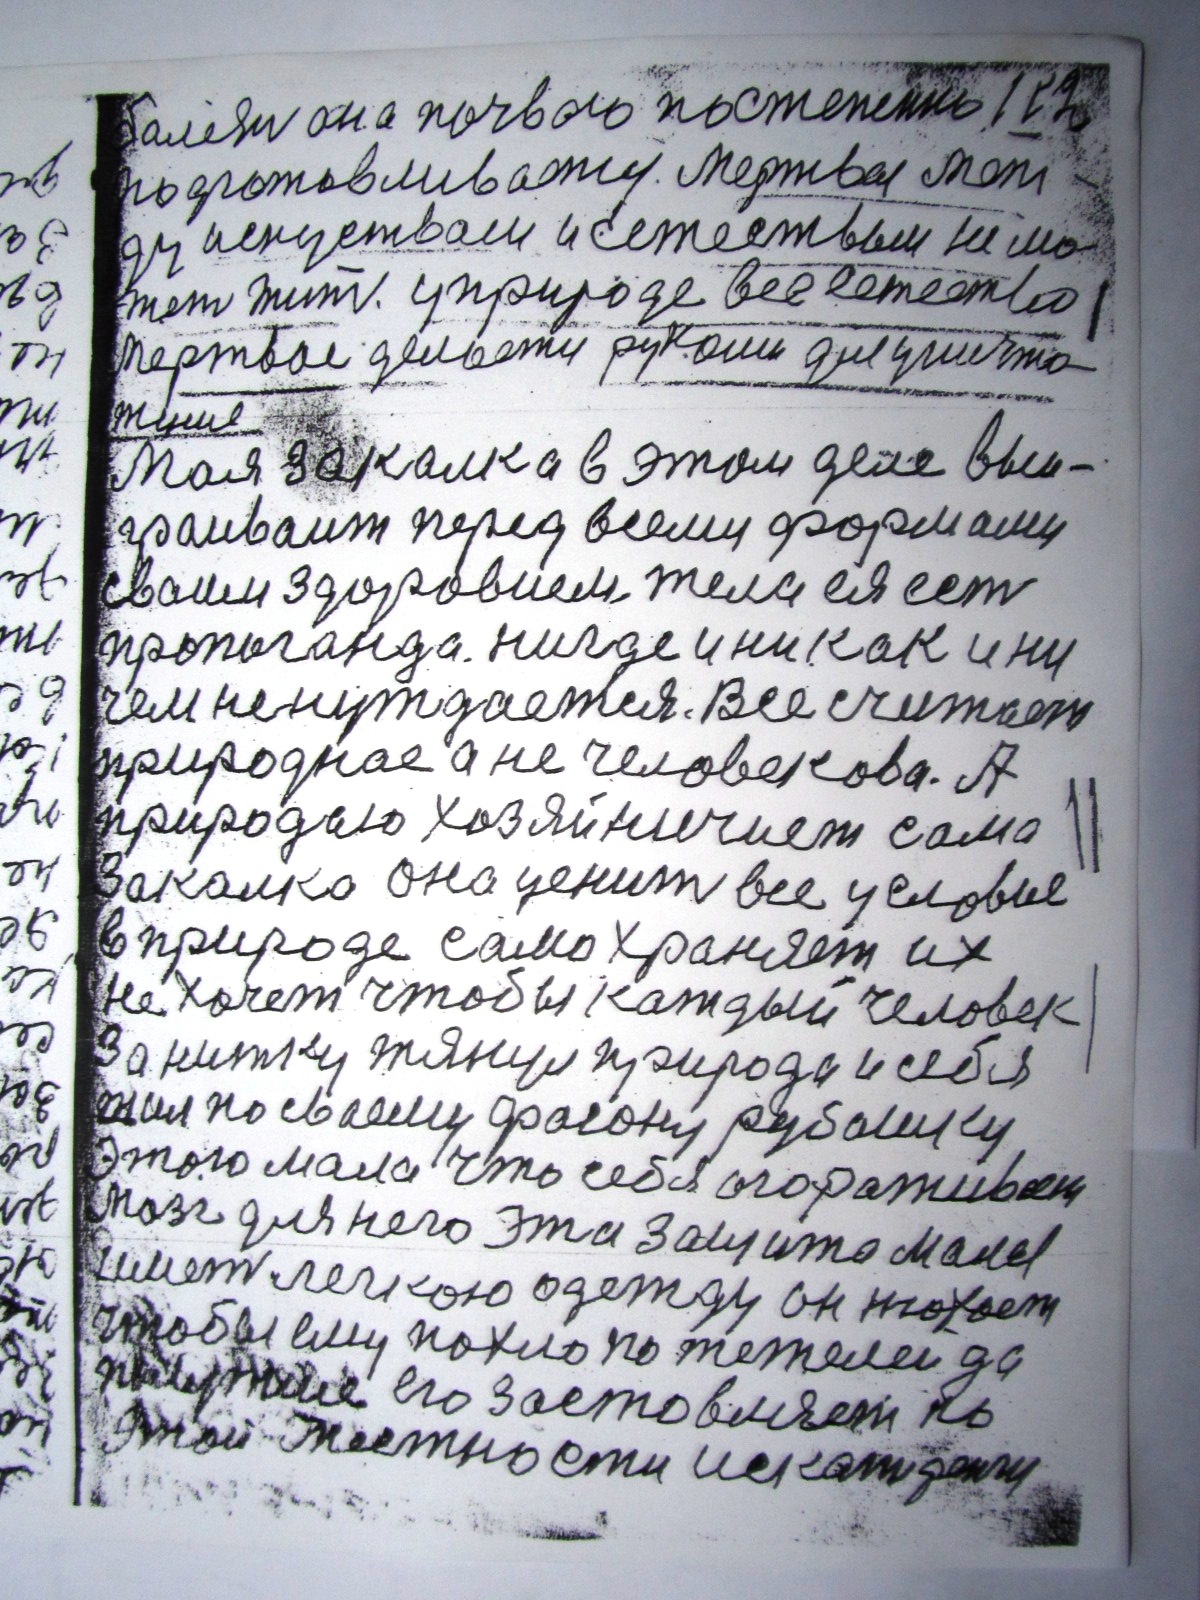 она почвою постепенно 152
подготовливаети. Мертвая меж
ду искуством и естеством не мо-
жет жит. У природе все естество
Мертвое делоети руками для уничто-
жение
Моя закалка в этом деле выи-
граиваит перед всеми формами
сваим здоровием. тела ея ест
пропоганда. нигде и никак и ни
чем не нуждается. Все считает
природное а не человекова. А
природаю хозяйничиет сама
Закалка она ценит все условие
в природе само храняет их
не хочет чтобы каждый человек
За нитку тянул природа и себя
жил по сваему фасону рубашку
Этого мала что себя огораживает
Мозг для него Эта Защита мала
имет легкою одежду он
чтобы ему похло по тежелей да
его заставляет по
Этой местности искат